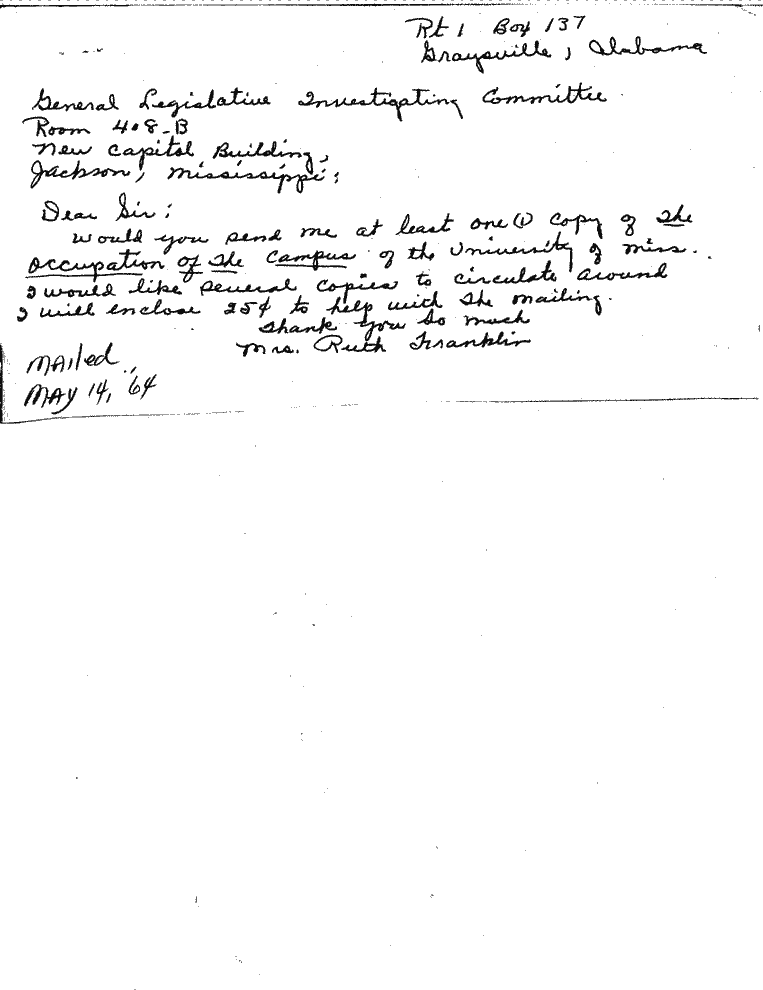 Rt 1 Box 137
Graysville, Alabama
General Legislative Investigating Committee
Room 408-B
New Capitol Building,
Jackson, Mississippi;
Dear Sir:
Would you send me at least one (1) copy of The
Occupation of The Campus of the University of Miss.
I would like several copies to circulate around
I will enclose 25¢ to help with the mailing.
Thank You So much
Mrs. Ruth Franklin
MAiled
MAY 14, '64